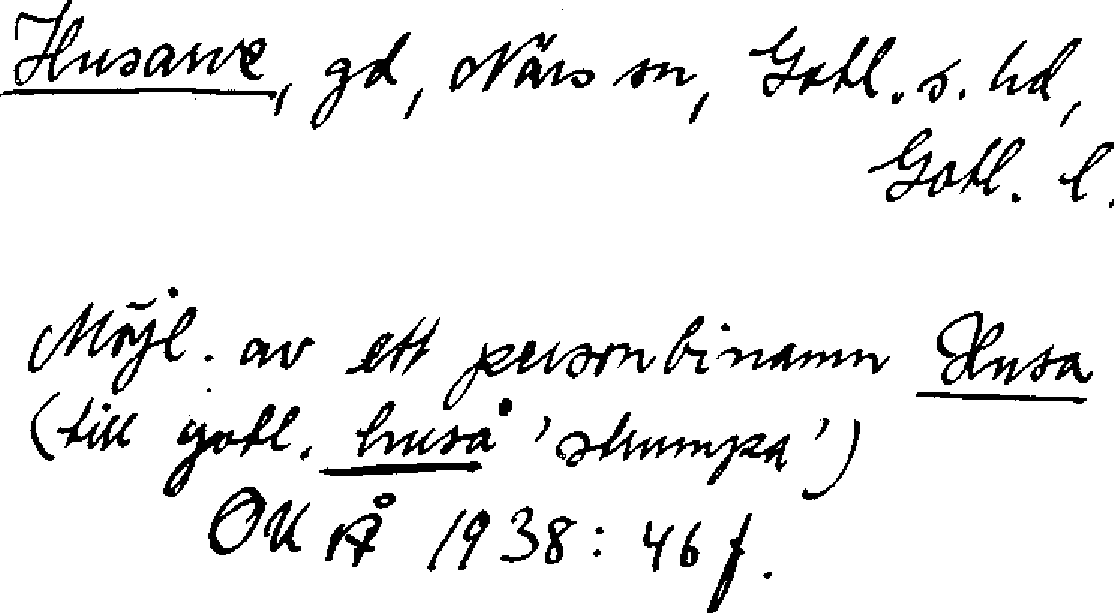 Husarve, gd, Närs sn, Gotl. s. hd,
Gotl. l.
Möjl. av ett personbinamn Husa
(till gotl. huså 'strumpa')
OUÅ 1938: 46 f.